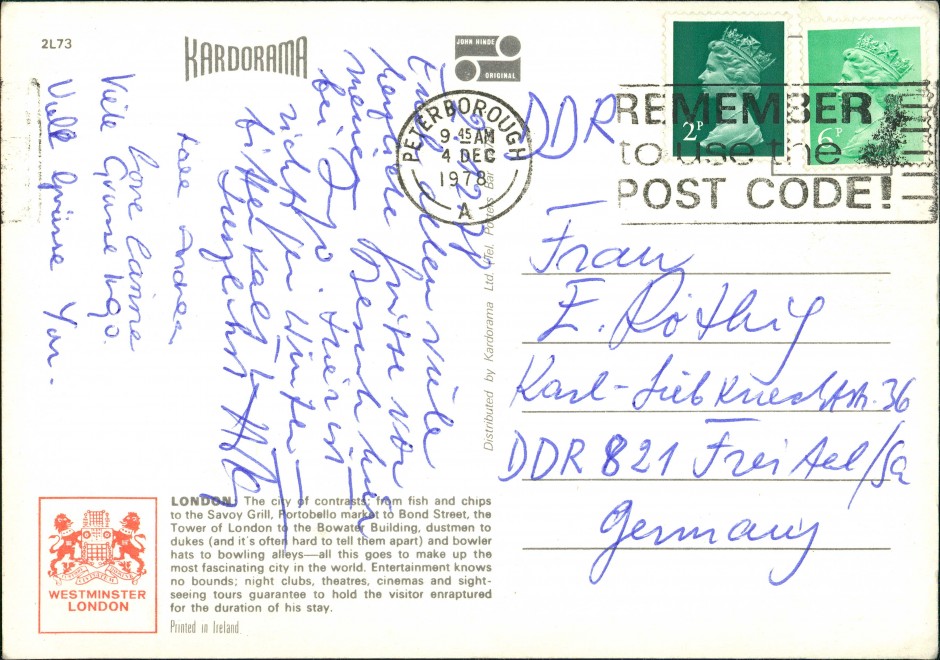 2L73
KARDORAMA
JOHN HINDE
ORIGINAL
PETERBOROUGH
9 45 AM
4 DEC
1978
A
2P
6P
REMEMBER
to use the
POST CODE!
DDR
Frau
E. Röthig
Karl-Liebknechtstr. 36
DDR 821 Freital/Sa
Germany
Euch allen viele
herzliche Grüsse von
meinem Besuch hier
bei Ingo. Hier ist
richtiger Winter
bitterkalt
Love
Viele Grüsse Ingo.
Viele Grüsse
Distributed by Kardorama Ltd. Tel. Potters Bar
LONDON: The city of contrasts; from fish and chips
to the Savoy Grill, Portobello market to Bond Street, the
Tower of London to the Bowater Building, dustmen to
dukes (and it's often hard to tell them apart) and bowler
hats to bowling alleys—all this goes to make up the
most fascinating city in the world. Entertainment knows
no bounds; night clubs, theatres, cinemas and sight-
seeing tours guarantee to hold the visitor enraptured
for the duration of his stay.
WESTMINSTER
LONDON
Printed in Ireland.